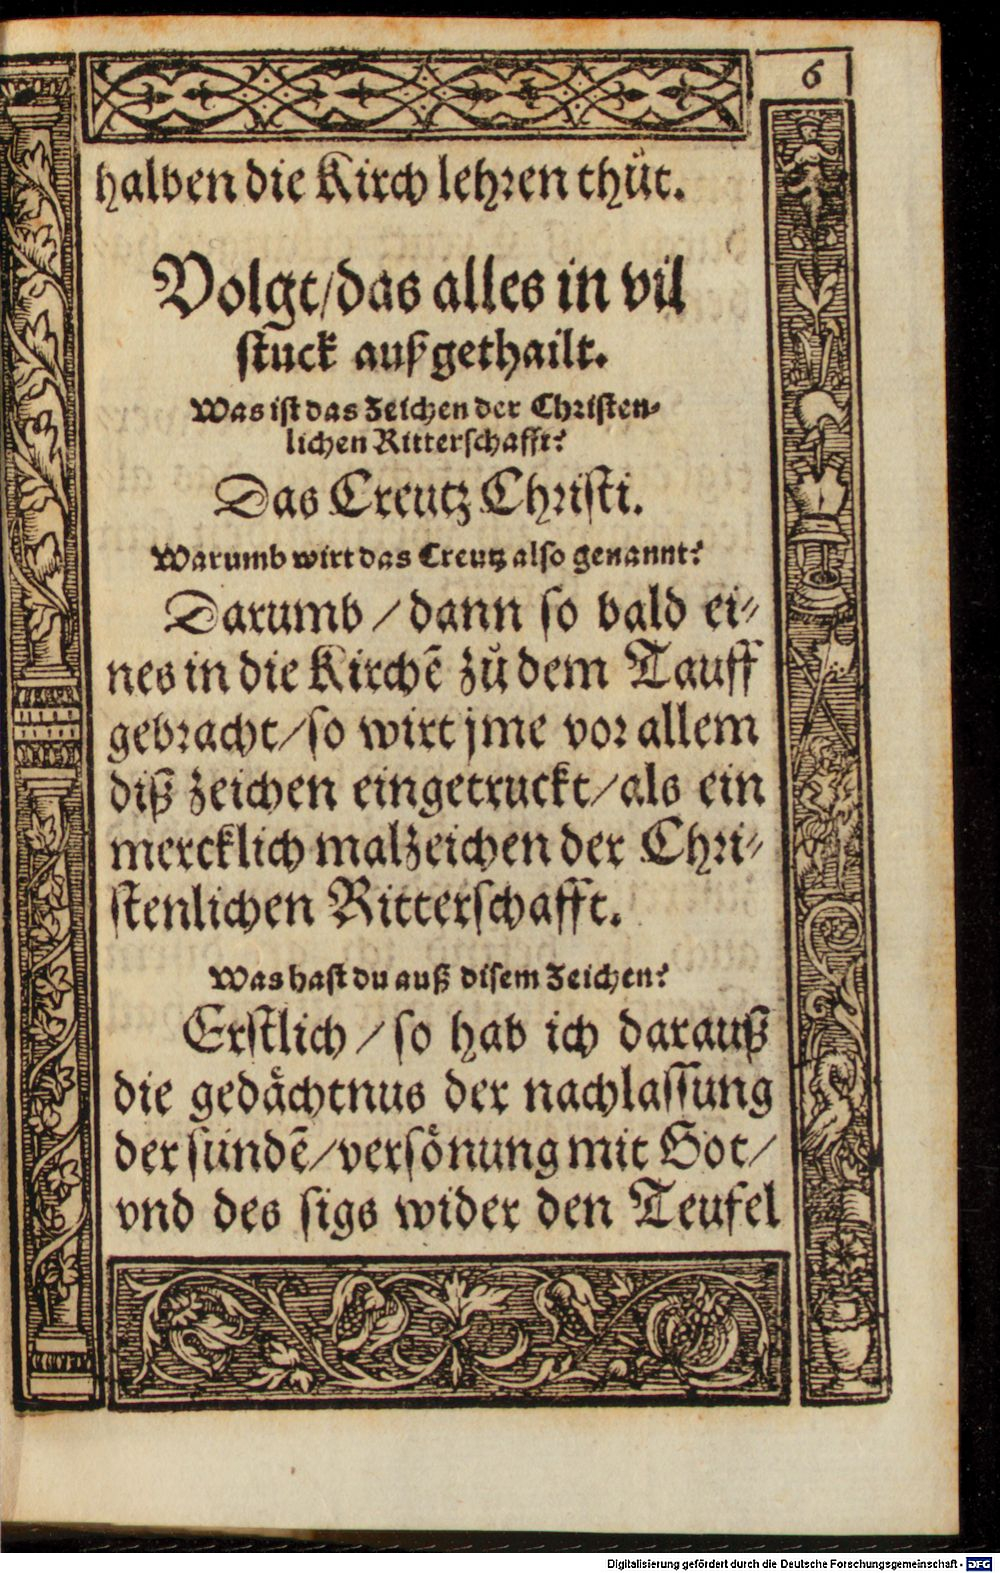 6
halben die Kirch lehren thůt.
Volgt/das alles in vil
stuck außgethailt.
Was ist das Zeichen der Christen-
lichen Ritterschafft?
Das Creutz Christi.
Warumb wirt das Creutz also genannt?
Darumb / dann so bald ei-
nes in die Kirchē zů dem Tauff
gebracht/so wirt jme vor allem
diß zeichen eingetruckt/als ein
mercklich malzeichen der Chri-
stenlichen Ritterschafft.
Was hast du auß disem Zeichen?
Erstlich / so hab ich darauß
die gedächtnus der nachlassung
der sündē/versönung mit Got/
vnd des sigs wider den Teufel
Digitalisierung gefördert durch die Deutsche Forschungsgemeinschaft - DFG